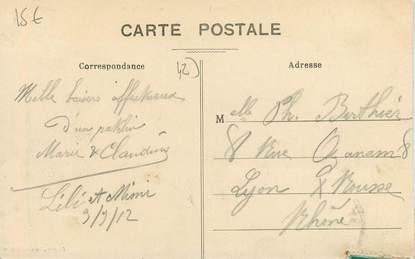 15€
CARTE POSTALE
Correspondance
42
Adresse
Mille baisers affectueux
d'un
Marie & Claudius
Lili et Mimi
9/9/12
Melle Ph. Berthier
8 Rue 8
Lyon X Rousse
Rhône